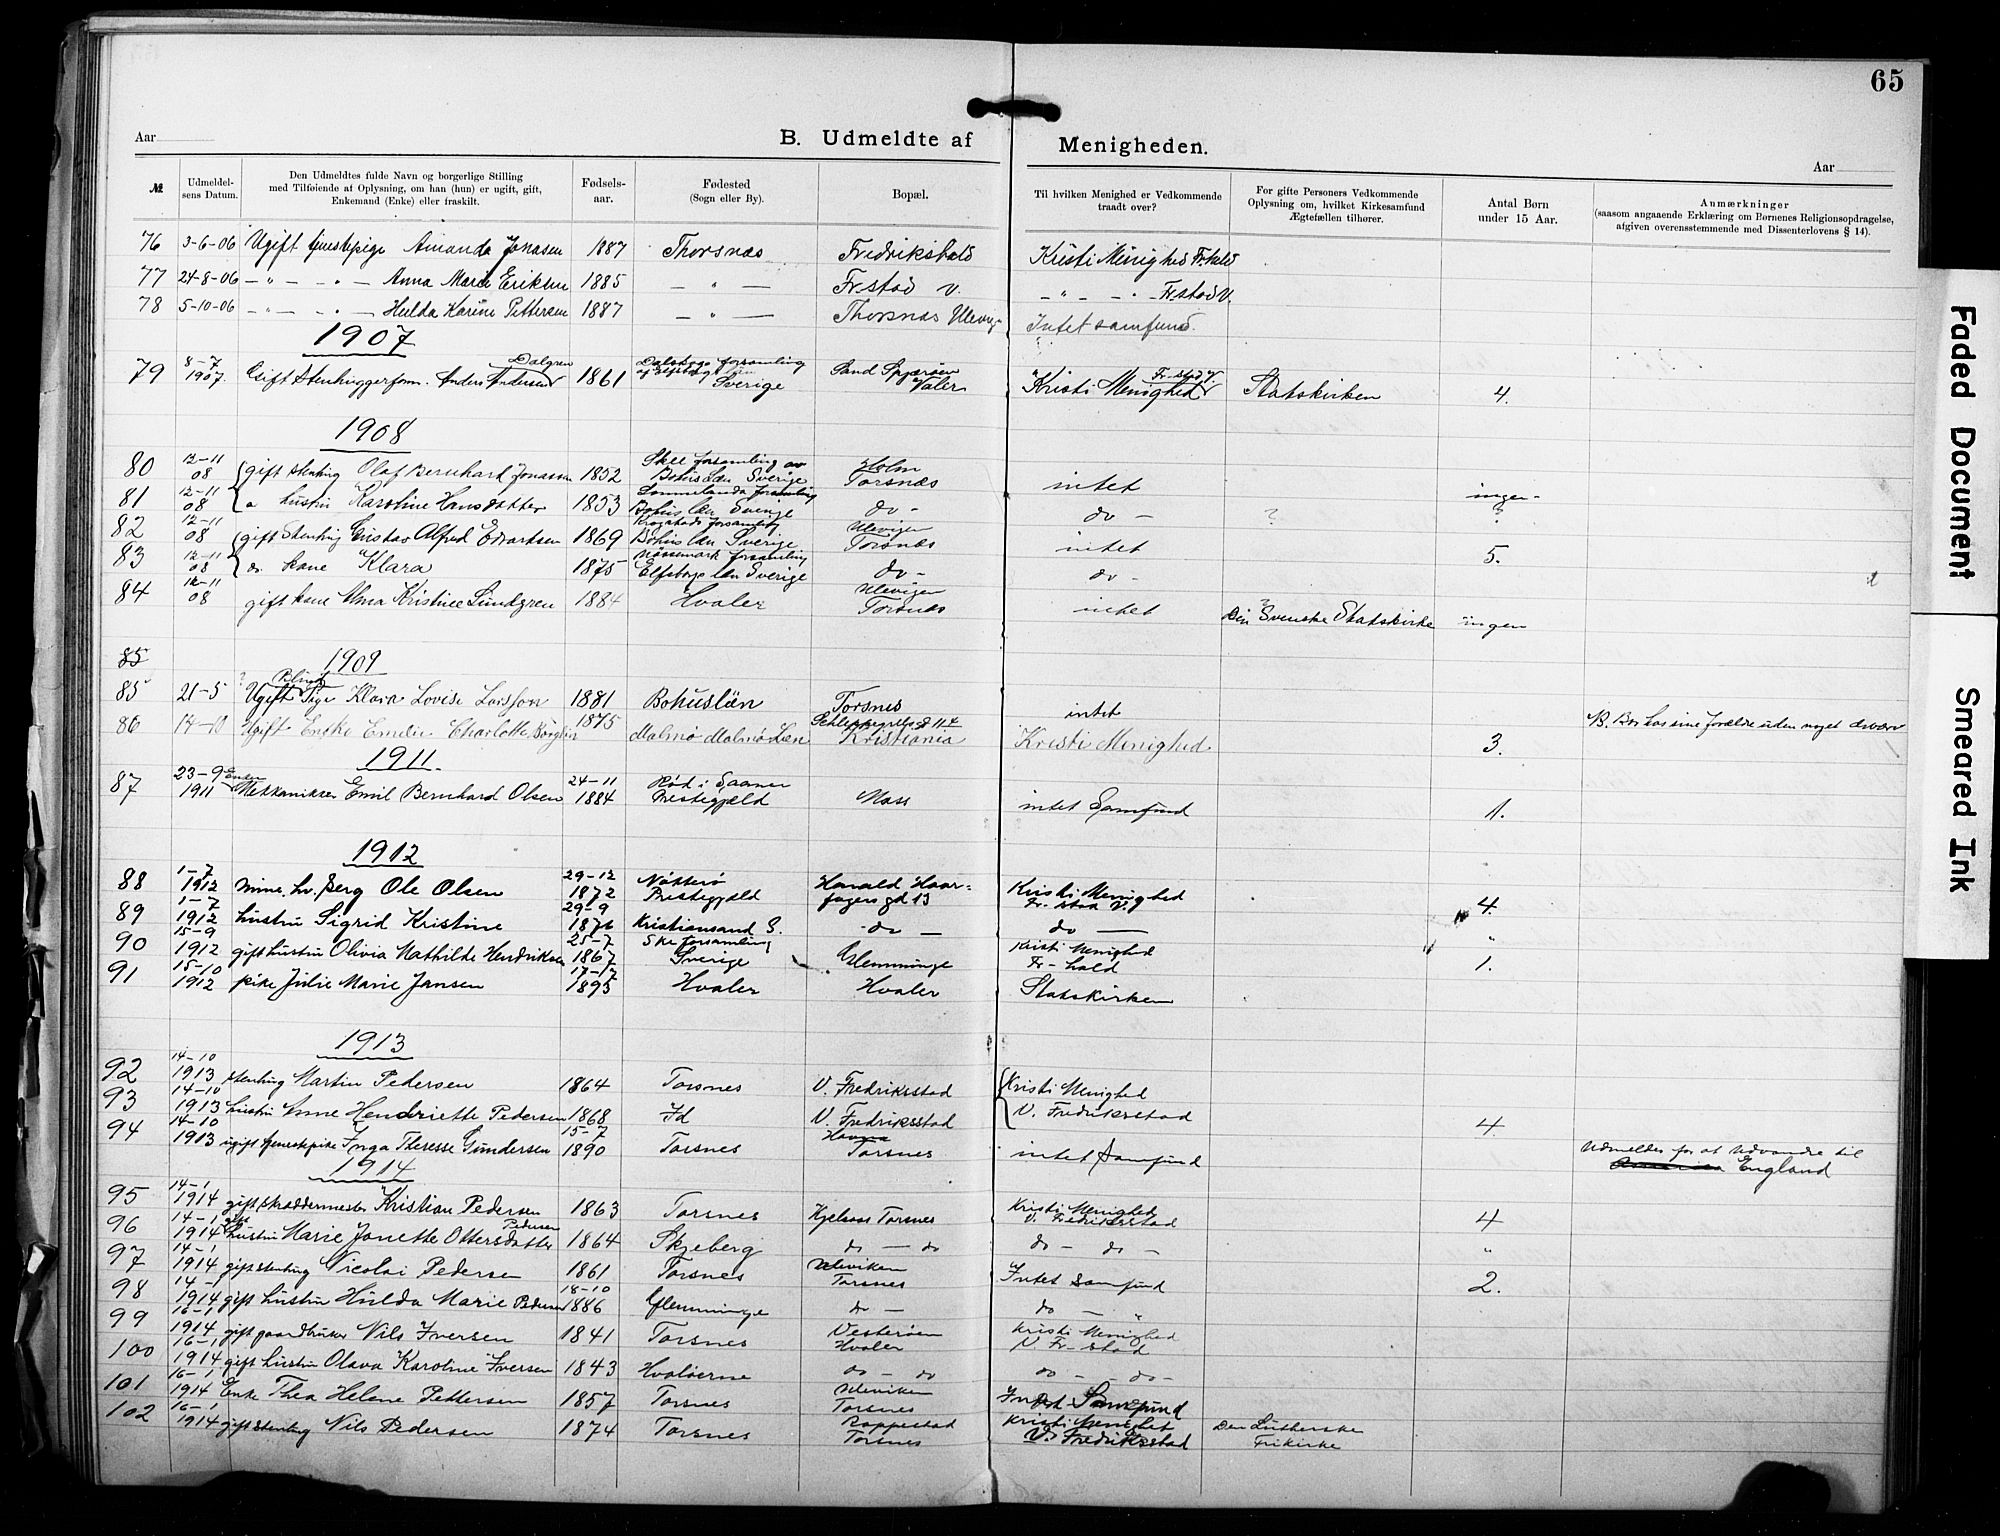 65
Aar
B. Udmeldte af Menigheden.
Aar
№
Udmeldel-
sens Datum.
Den Udmeldtes fulde Navn og borgerlige Stilling
med Tilføiende af Oplysning, om han (hun) er ugift, gift,
Enkemand (Enke) eller fraskilt.
Fødsels-
aar.
Fødested
(Sogn eller By).
Bopæl.
Til hvilken Menighed er Vedkommende
traadt over?
For gifte Personers Vedkommende
Oplysning om, hvilket Kirkesamfund
Ægtefællen tilhører.
Antal Børn
under 15 Aar.
Anmærkninger
(saasom angaaende Erklæring om Børnenes Religionsopdragelse,
afgiven overensstemmende med Dissenterlovens § 14).
76 3-6-06 Ugift tjenestepige Amanda Jonasen 1887 Thorsnæs Fredrikshald Kristi Menighed Fr.hald
77 24-8-06 — " — — " — Anna Marie Eriksen 1885 — " — Fr.stad V. — " — — " — Fr.stad V.
78 5-10-06 — " — — " — Hulda Karine Pettersen 1887 — " — Thorsnæs Intet samfund.
1907
79 8-7 1907. Gift Stenhuggerform. Anders Andersen Dalgren 1861 forsamling Sverige Sand Spjærøen Valer Kristi Menighed Fr-stad V. Statskirken 4.
1908
80 12-11 08 gift stenhug Olaf Bernhard Jonassen 1852 Skee forsamling av Bohus Læn Sverige Holm Torsnæs intet ingen -
81 12-11 08 hustru Karoline Hansdatter 1853 forsamling Bohus læn Sverige do - do - ? ?
82 12-11 08 gift Stenhug Gustav Alfred Edvartsen 1869 forsamling Bohus læn Sverige Ulevigen Torsnæs intet 5.
83 12-11 08 do. kone Klara 1875 forsamling Elfsborgs læn Sverige do - do -
84 12-11 08 gift kone Alma Kristine Lundgren 1884 Hvaler Ulevigen Torsnæs intet ? Den Svenske Statskirke ingen
85 1909
85 21-5 ? Blind Ugift Pige Klara Lovise Larsson 1881 Bohuslän Torsnes intet NB. Bor hos sine forældre uden noget
86 14-10 Ugift Enske Emelie Charlotte 1875 Malmø Malmø Læn Schleppegrels gd 11 4 Kristiania Kristi Menighed 3.
1911.
87 23-9 1911 Mekkaniker Emil Bernhard Olsen 24-11 1884 Rød i Saaner Prestegjæld Moss intet Samfund 1.
1912
88 1-7 1912 mine. hv. Berg Ole Olsen 29-12 1872 Nøtterø Prestegjæld Harald Haar=
fagers gd 13 Kristi Menighed Fr. stad V. 4.
89 1-7 1912 hustru Sigrid Kristine 29-9 1876 Kristiansand S. - do — do —— "
90 15-9 1912 gift hustru Olivia Mathilde Hendriksen 25-7 1867 Ske forsamling Sverige Glemminge Kristi Menighed Fr- hald 1.
91 15-10 1912 pike Julie Marie Jansen 17-12 1895 Hvaler Hvaler Statskirken
1913
92 14-10 1913 stenhug Martin Pedersen 1864 Torsnes V. Fredriksstad Kristi Menighed
93 14-10 1913 hustru Anne Hendriette Pedersen 1868 Id V. Fredriksstad V. Fredriksstad 4.
94 14-10 1913 ugift tjenestepike Inga Theresse Gundersen 15-7 1890 Torsnes Torsnes intet Samfund Udmeldes for at udvandre til England
1914
95 14-1 1914 gift skreddermester Kristian Pedersen 1863 Torsnes Kjelsaas Torsnes Kristi Menighed V. Fredriksstad 4
96 14-1 1914 gift hustru Marie Jonette Ottersdatter Pedersen 1864 Skjeberg do — do do - do - "
97 14-1 1914 gift stenhug Nicolai Pedersen 1861 Torsnes Uleviken Torsnes Intet samfund 2.
98 14-1 1914 gift hustru Hulda Marie Pedersen 18-10 1886 Glemminge do — do — "
99 16-1 1914 gift gaardbruker Nils Iversen 1841 Torsnes Vesterøen Hvaler Kristi Menighed V Fr- stad
100 16-1 1914 gift hustru Olava Karoline Iversen 1843 Hvaløerne do - do do - - do -
101 16-1 1914 Enke Thea Helene Pettersen 1857 Torsnes Uleviken Torsnes Intet Samfund
102 16-1 1914 gift stenhug Nils Pedersen 1874 Torsnes Roppestad Torsnes Kristi Menighet V. Fredriksstad Den Lutherske Frikirke
Faded Document
Smeared Ink